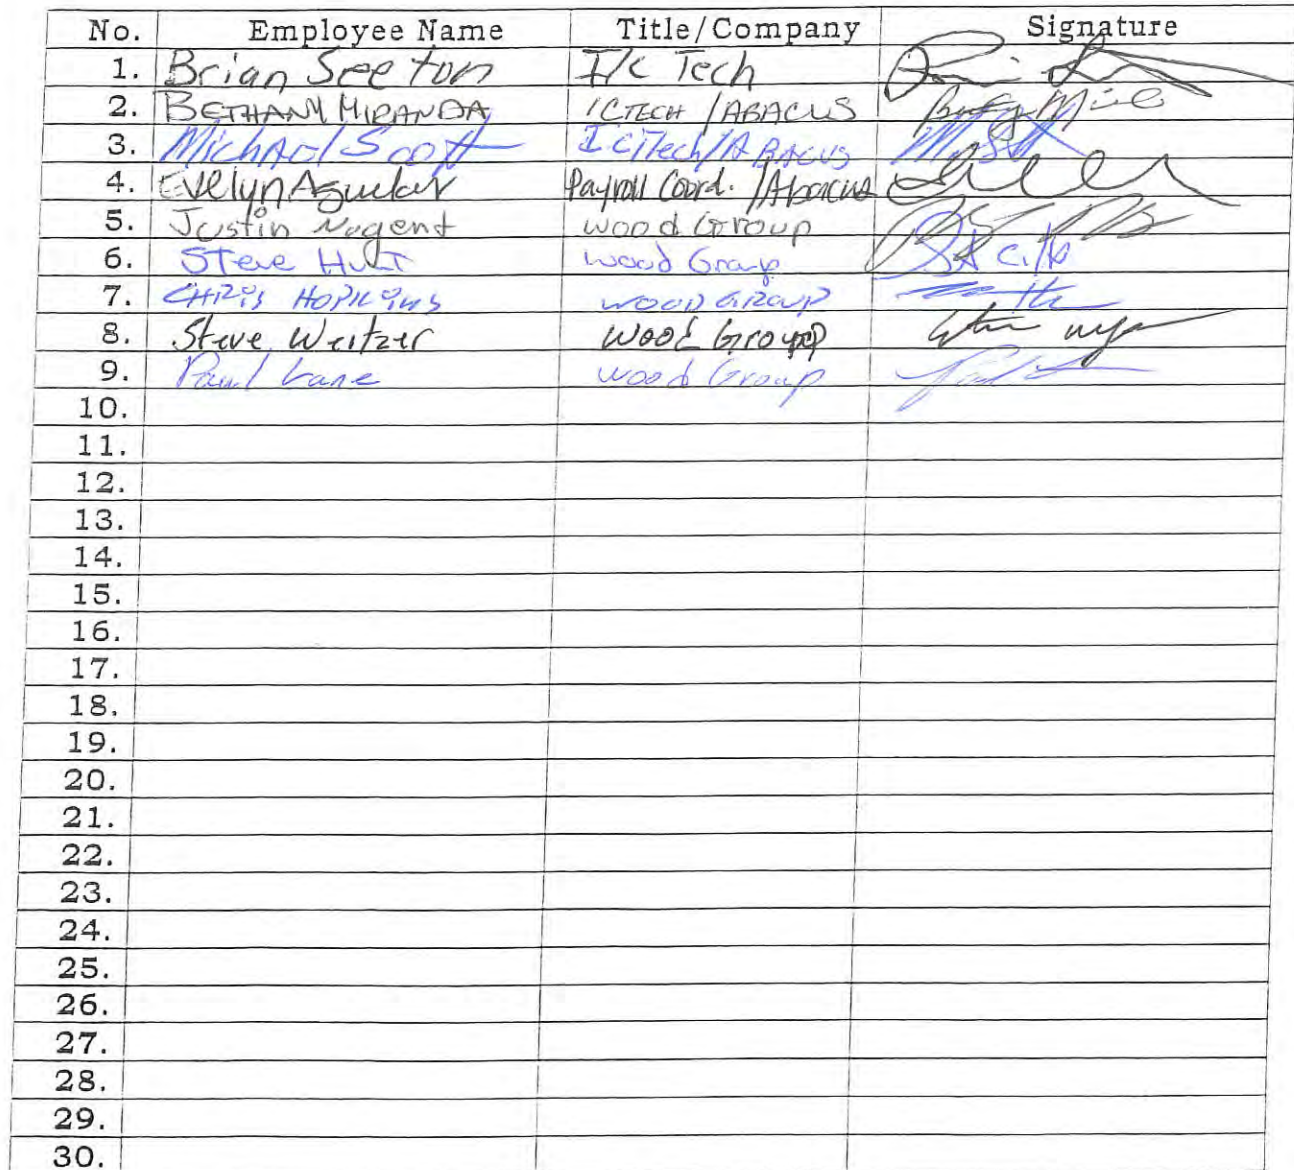 No. Employee Name Title/Company Signature
1. Brian Seeton I/C Tech
2. BETHANY MIRANDA ICTECH/ABACUS
3. Michael Scott ICTech/ABACUS
4. Evelyn Aguilar Payroll Coord./Abacus
5. Justin Nugent wood Group
6. Steve Hult wood Group
7. CHRis HOPKins WOOD GROUP
8. Steve Weitzer Wood Group
9. Paul Lane wood Group
10.
11.
12.
13.
14.
15.
16.
17.
18.
19.
20.
21.
22.
23.
24.
25.
26.
27.
28.
29.
30.